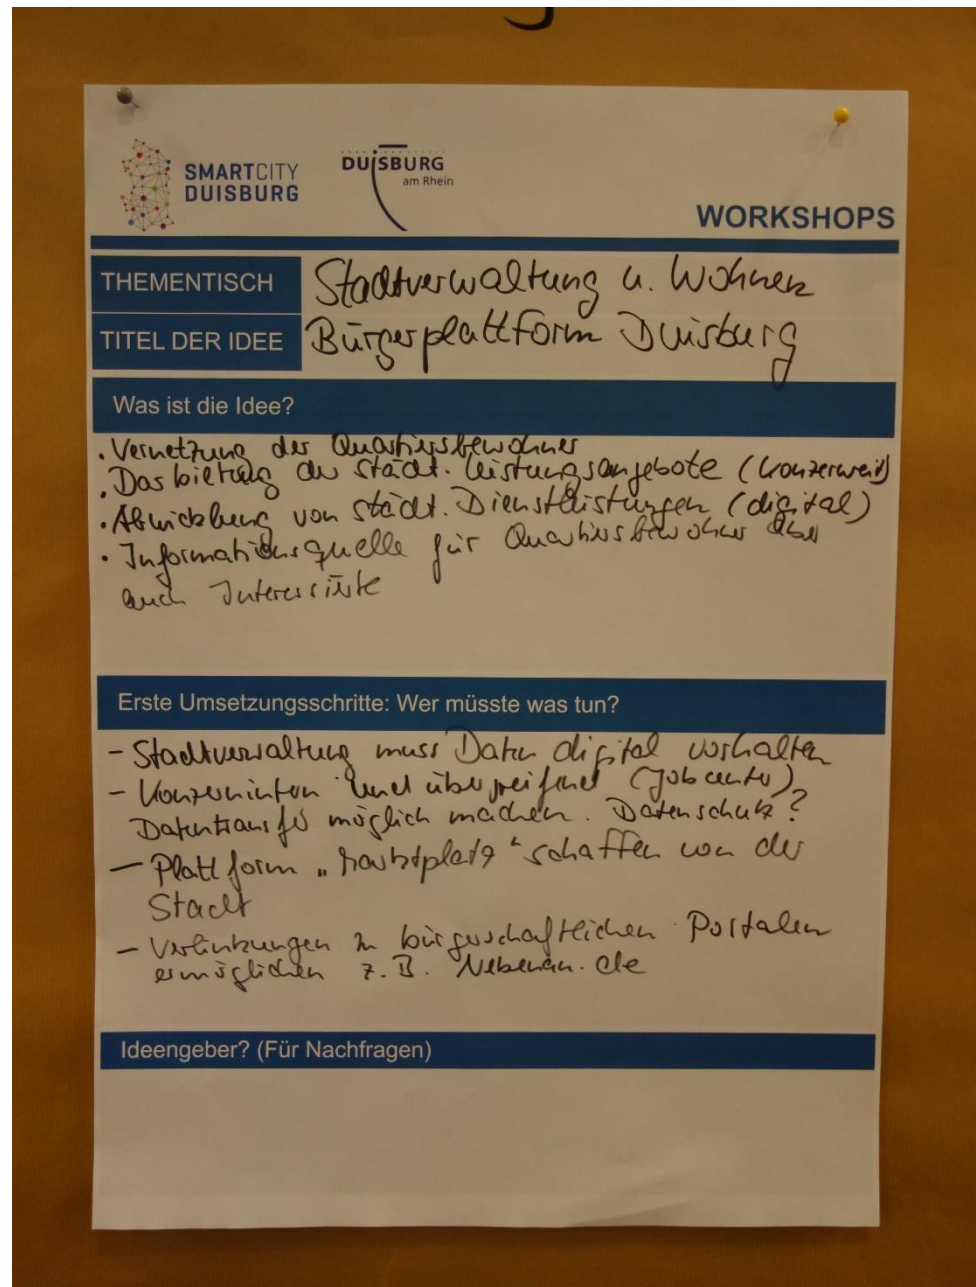 SMARTCITY
DUISBURG
DUISBURG
am Rhein
WORKSHOPS
THEMENTISCH Stadtverwaltung u. Wohnen
TITEL DER IDEE Bürgerplattform Duisburg
Was ist die Idee?
• Vernetzung der Quartiersbewohner
• Darbietung der städt. Leistungsangebote (konzernweit)
• Abwicklung von städt. Dienstleistungen (digital)
• Informationsquelle für Quartiersbewohner aber
auch Interessierte
Erste Umsetzungsschritte: Wer müsste was tun?
- Stadtverwaltung muss Daten digital vorhalten
- Konzernintern und übergreifend (Jobcenter)
Datentransfer möglich machen. Datenschutz?
- Plattform „Marktplatz" schaffen von der
Stadt
- Verlinkungen zu bürgerschaftlichen Portalen
ermöglichen z.B. Nebenan.de
Ideengeber? (Für Nachfragen)